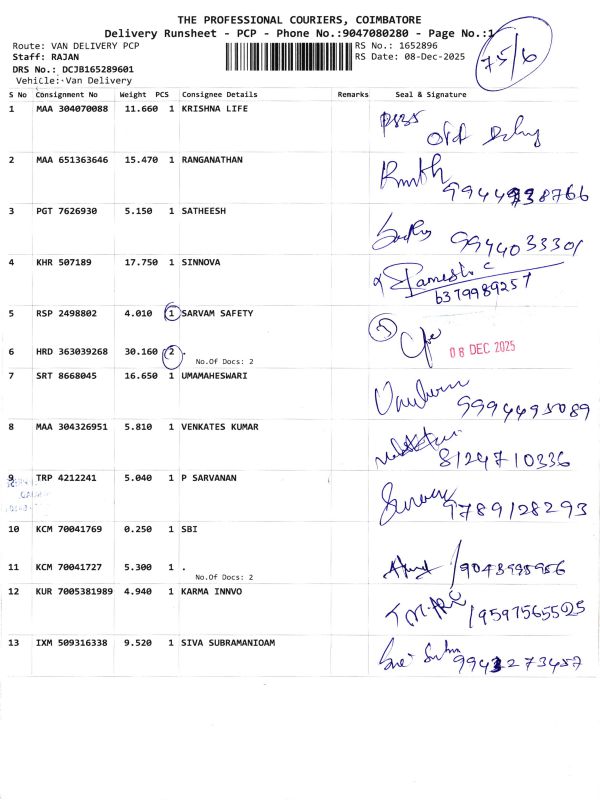 THE PROFESSIONAL COURIERS, COIMBATORE
Delivery Runsheet - PCP - Phone No.:9047080280 - Page No.:1
Route: VAN DELIVERY PCP RS No.: 1652896
Staff: RAJAN RS Date: 08-Dec-2025
75/6
DRS No.: DCJB165289601
Vehicle:-Van Delivery
S No Consignment No Weight PCS Consignee Details Remarks Seal & Signature
1 MAA 304070088 11.660 1 KRISHNA LIFE
2 MAA 651363646 15.470 1 RANGANATHAN
9944938766
3 PGT 7626930 5.150 1 SATHEESH
9944033301
4 KHR 507189 17.750 1 SINNOVA
Ramesh. C
6379989257
5 RSP 2498802 4.010 1 SARVAM SAFETY
3
08 DEC 2025
6 HRD 363039268 30.160 2 .
No.Of Docs: 2
7 SRT 8668045 16.650 1 UMAMAHESWARI
9994495089
8 MAA 304326951 5.810 1 VENKATES KUMAR
8124710336
9 TRP 4212241 5.040 1 P SARVANAN
9789128293
10 KCM 70041769 0.250 1 SBI
11 KCM 70041727 5.300 1 .
No.Of Docs: 2
9043995956
12 KUR 7005381989 4.940 1 KARMA INNVO
9597565525
13 IXM 509316338 9.520 1 SIVA SUBRAMANIOAM
9943273457